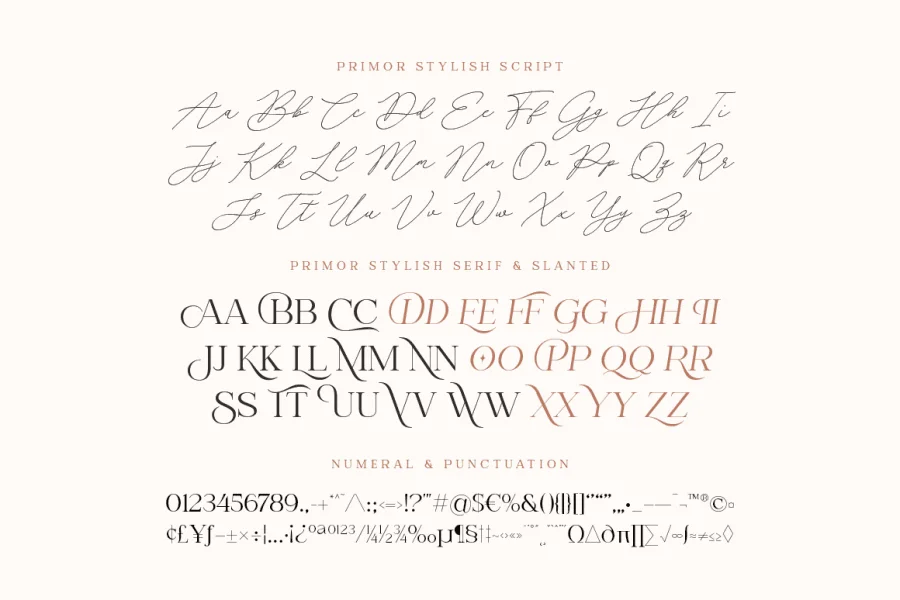 PRIMOR STYLISH SCRIPT
Aa Bb Cc Dd Ee Ff Gg Hh Ii
Jj Kk Ll Mm Nn Oo Pp Qq Rr
Ss Tt Uu Vv Ww Xx Yy Zz
PRIMOR STYLISH SERIF & SLANTED
AA BB CC DD EE FF GG HH II
JJ KK LL MM NN OO PP QQ RR
SS TT UU VV WW XX YY ZZ
NUMERAL & PUNCTUATION
0123456789.,-+*^~/\|:;<=>!?'"#@$€%&(){|}[]‘’“”‚„•_–—¯¬™®©▫
¢£¥ƒ−±×÷¦…·¡¿ºª⁰¹²³/¼½¾‰µ¶§†‡~‹›«»Ω△∂π∏∑√∞∫≈≠≤≥◊